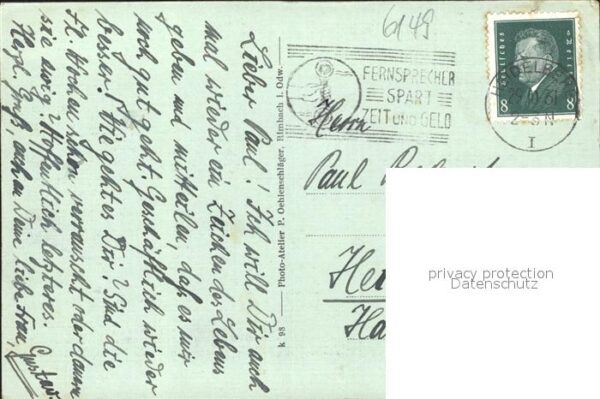 Lieber Paul! Ich will Dir auch
mal wieder ein Zeichen des Lebens
geben und mitteilen, daß es mir
noch gut geht. Geschäftlich wieder
besser. Wie geht es Dir? Sind die
Fl. Wochen schon verrauscht oder dauern
sie ewig? Hoffentlich letzteres.
Herzl. Gruß, auch an Deine liebe Frau,
Gustav
k 98 — Photo-Atelier P. Oehlenschläger, Rimbach i. Odw. —
6149
FERNSPRECHER
SPART
ZEIT UND GELD
8 8
I
Herrn
Paul
privacy protection
Datenschutz